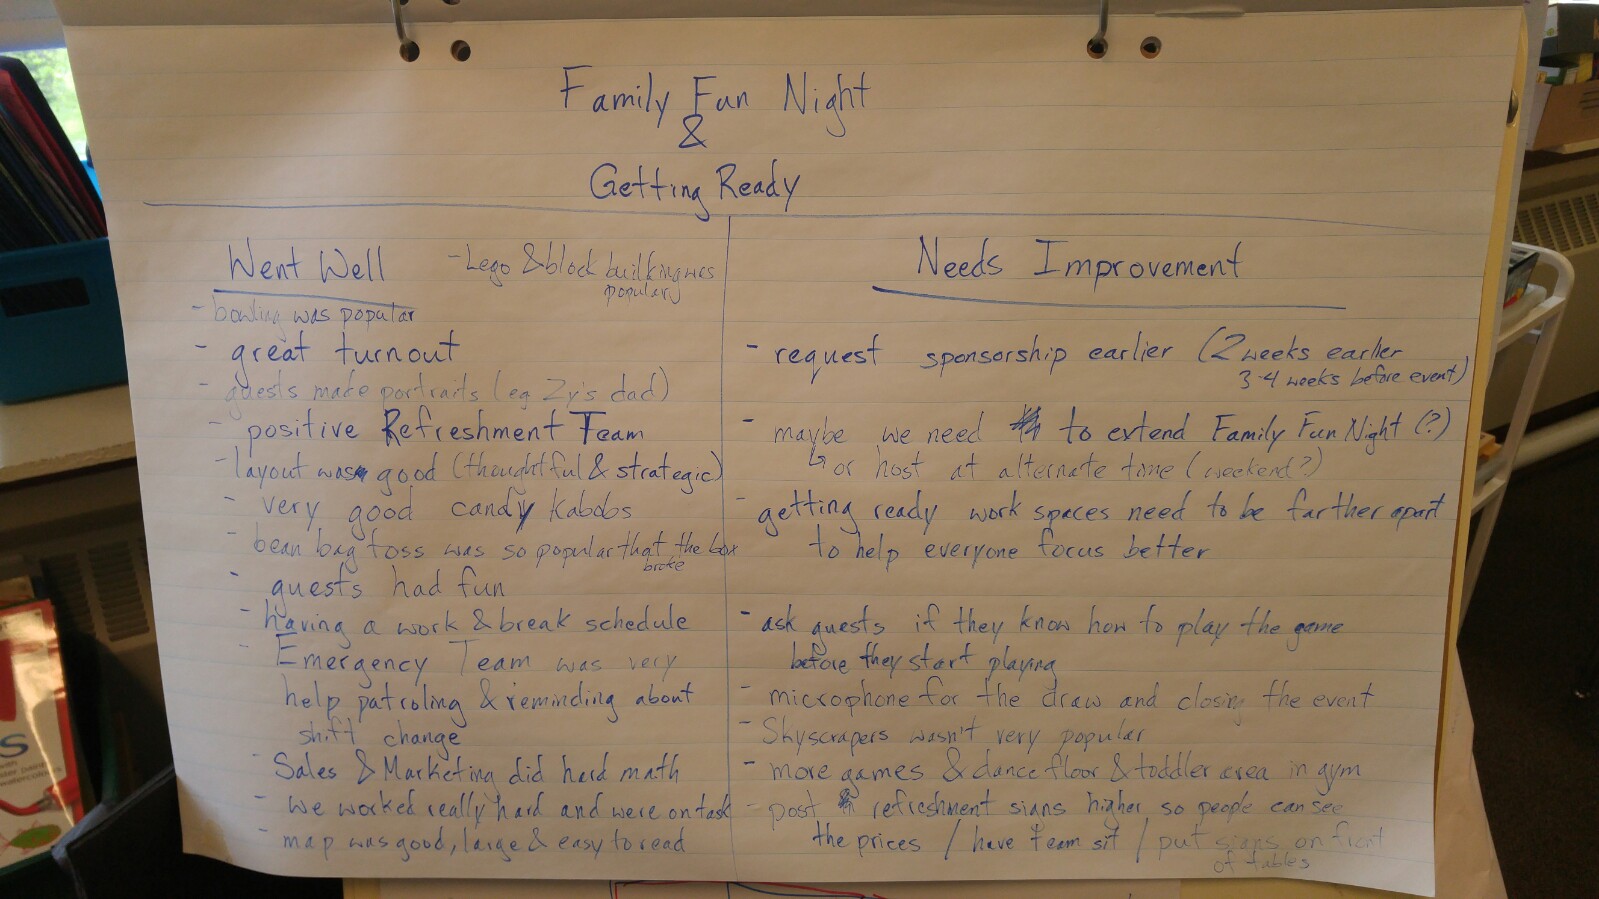 Family Fun Night
&
Getting Ready
Went Well
- Lego & block building was
popular
- bowling was popular
- great turnout
- guests made portraits (eg Zy's dad)
- positive Refreshment Team
- layout was good (thoughtful & strategic)
- very good candy kabobs
- bean bag toss was so popular that the box
broke
- guests had fun
- having a work & break schedule
- Emergency Team was very
help patroling & reminding about
shift change
- Sales & Marketing did hard math
- we worked really hard and were on task
- map was good, large & easy to read
Needs Improvement
- request sponsorship earlier (2 weeks earlier
3-4 weeks before event)
- maybe we need to extend Family Fun Night (?)
↳ or host at alternate time (weekend?)
- getting ready work spaces need to be farther apart
to help everyone focus better
- ask guests if they know how to play the game
before they start playing
- microphone for the draw and closing the event
- Skyscrapers wasn't very popular
- more games & dance floor & toddler area in gym
- post refreshment signs higher so people can see
the prices / have team sit / put signs on front
of tables